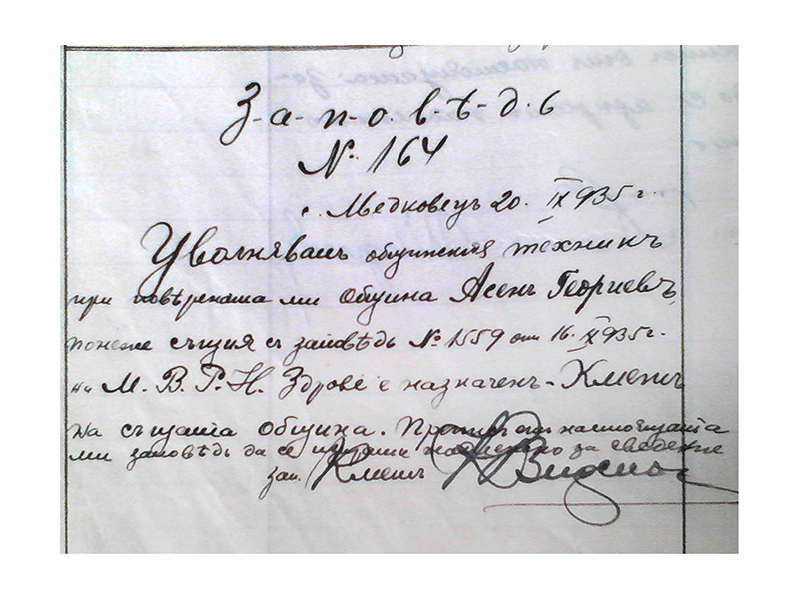 З-а-п-о-в-ѣ-д-ь
№ 164
с. Медковецъ 20. IX 935 г.
Уволнявамъ общинския техникъ
при повѣрената ми община Асенъ Георгиевъ,
понеже същия съ заповѣдь № 1559 отъ 16. IX 935 г.
на М. В. Р. Н. Здраве е назначенъ - Кметъ
на същата община. Преписъ отъ настоящата
ми заповѣдь да се изпрати надлежно за сведение
зам. Кметъ